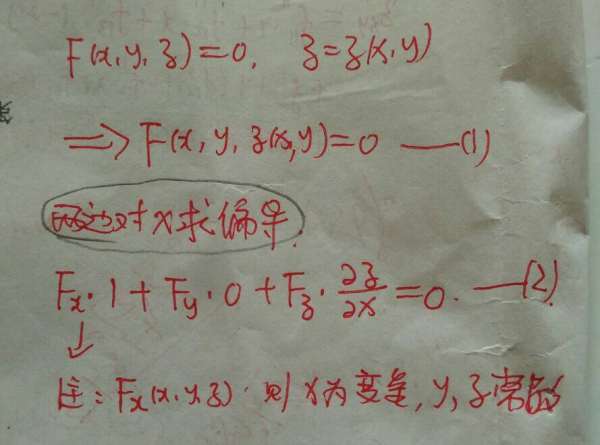 F(x,y,z)=0, z=z(x,y)
⟹ F(x,y,z(x,y)=0 —(1)
两边对x求偏导.
Fx·1+Fy·0+Fz·∂z/∂x=0. —(2)
↓
注:Fx(x,y,z).则x为变量,y,z常数